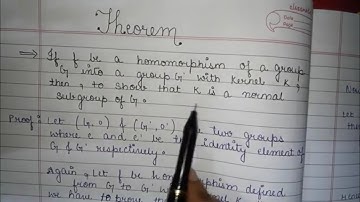 Theorem
⇒ If f be a homomorphism of a group
G into a group G' with kernel K,
then, to show that K is a normal
subgroup of G.
Proof: Let (G, o) & (G', o') two groups
where e and e' be the identity element of
G & G' respectively.
Again, Let f be homomorphism defined
from G to G' with kernel K
we have to prove